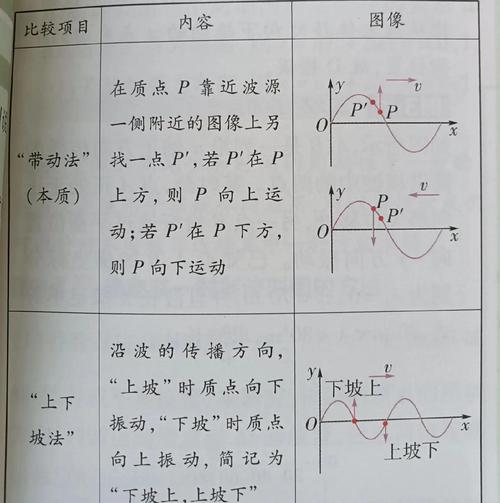 比较项目 内容 图像
在质点 P 靠近波源
一侧附近的图像上另
找一点 P′,若 P′在 P
上方,则 P 向上运
动;若 P′在 P 下方,
则 P 向下运动
“带动法”
(本质)
y v
P′ P
O x
y v
P
P′
O x
沿波的传播方向,
“上坡”时质点向下
振动,“下坡”时质点
向上振动,简记为
“下坡上,上坡下”
“上下
坡法”
y v
下坡上
O x
上坡下